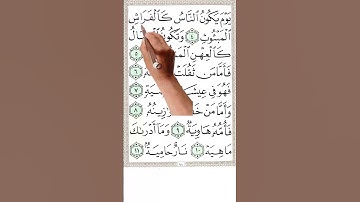 يَوْمَ يَكُونُ النَّاسُ كَالْفَرَاشِ
الْمَبْثُوثِ ٤ وَتَكُونُ
كَالْعِهْنِ ٥
فَأَمَّا مَنْ ثَقُلَتْ ٦
فَهُوَ فِي ٧
وَأَمَّا مَنْ ٨
فَأُمُّهُ هَاوِيَةٌ ٩ وَمَا أَدْرَىٰكَ
مَا هِيَهْ ١٠ نَارٌ حَامِيَةٌ ١١